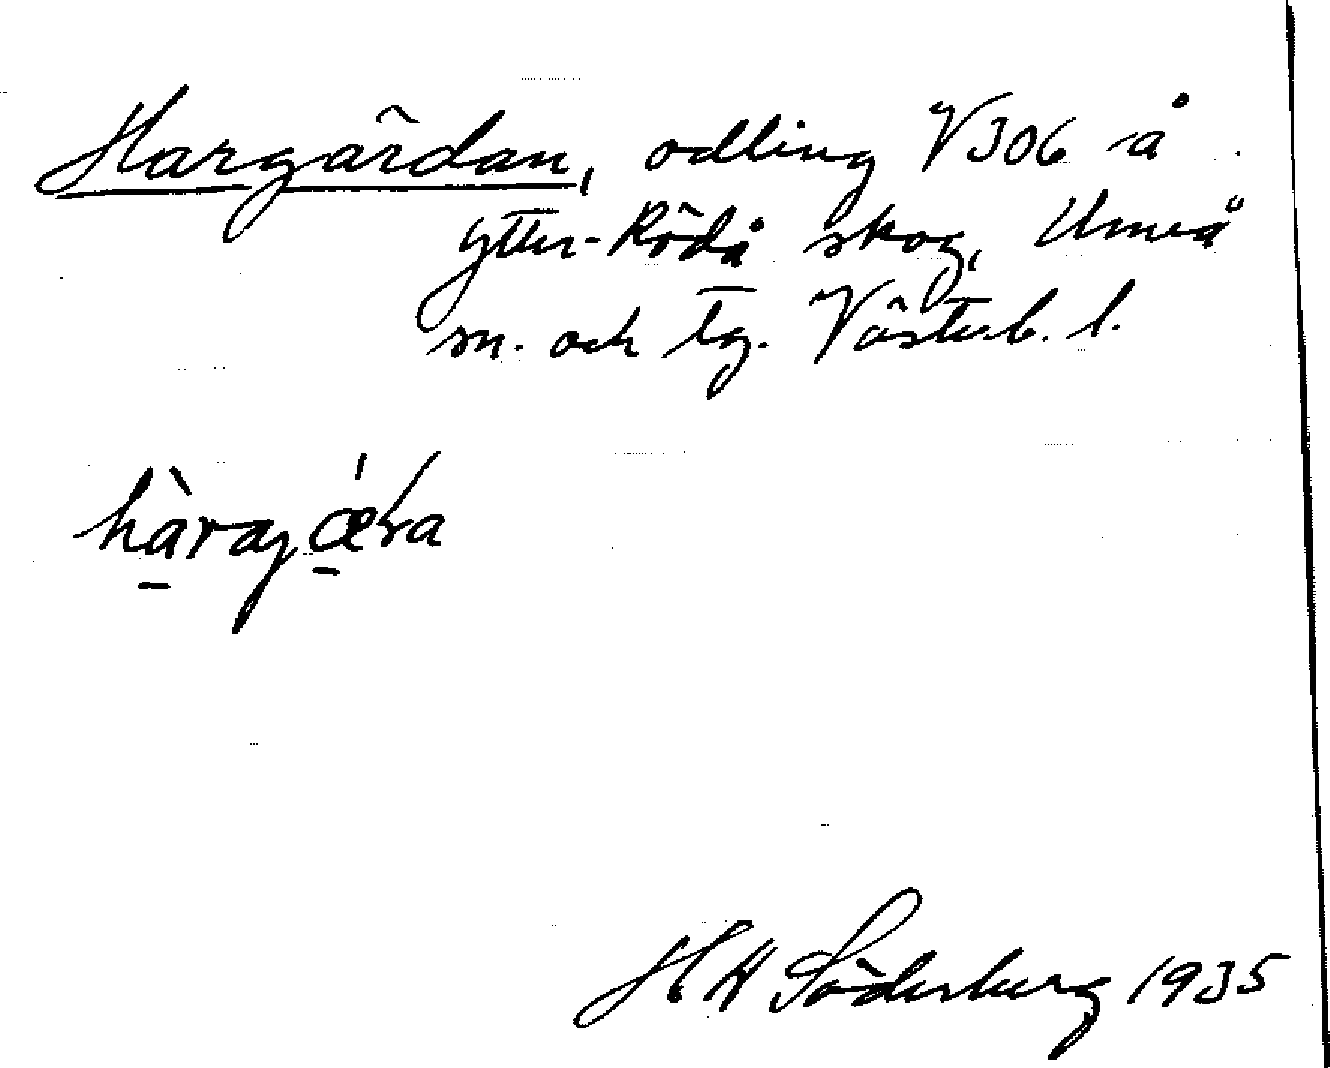 Hargärdan, odling V306 å
ytter-Rödå skog, Umeå
sn. och tg. Västerb. l.
hàragǽɽa
H H Söderberg 1935